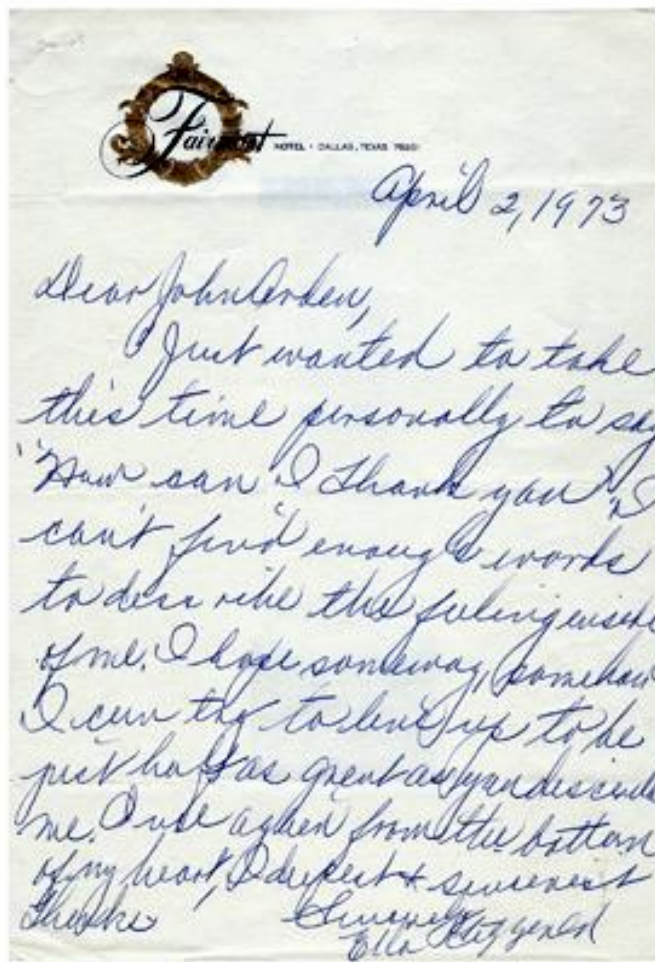 Fairmont HOTEL · DALLAS, TEXAS 75201
April 2, 1973
Dear John Arden,
Just wanted to take
this time personally to say
"How can I thank you" I
can't find enough words
to describe the feeling inside
of me. I hope someway, somehow
I can try to live up to be
just half as great as you describe
me. Once again from the bottom
of my heart, deepest & sincerest
Thanks Sincerely
Ella Fitzgerald